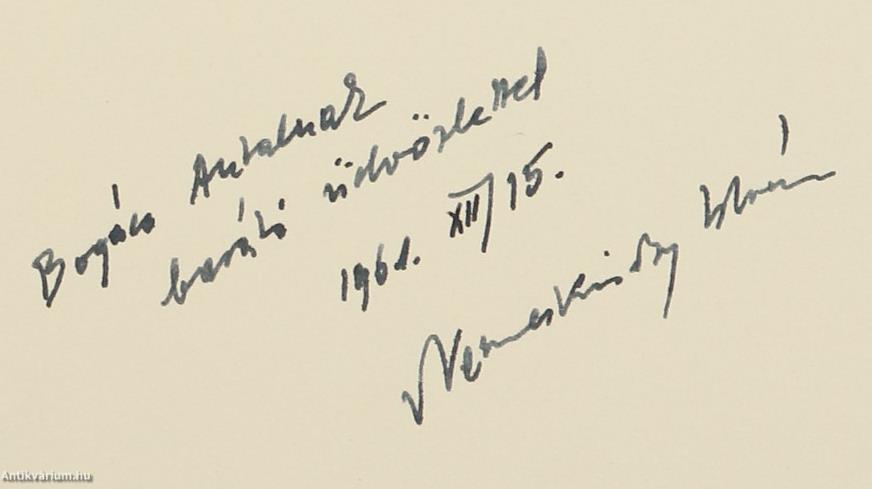 Bogács Antalnak
baráti üdvözlettel
1961. XII/15.
Nemeskürty István
Antikvárium.hu